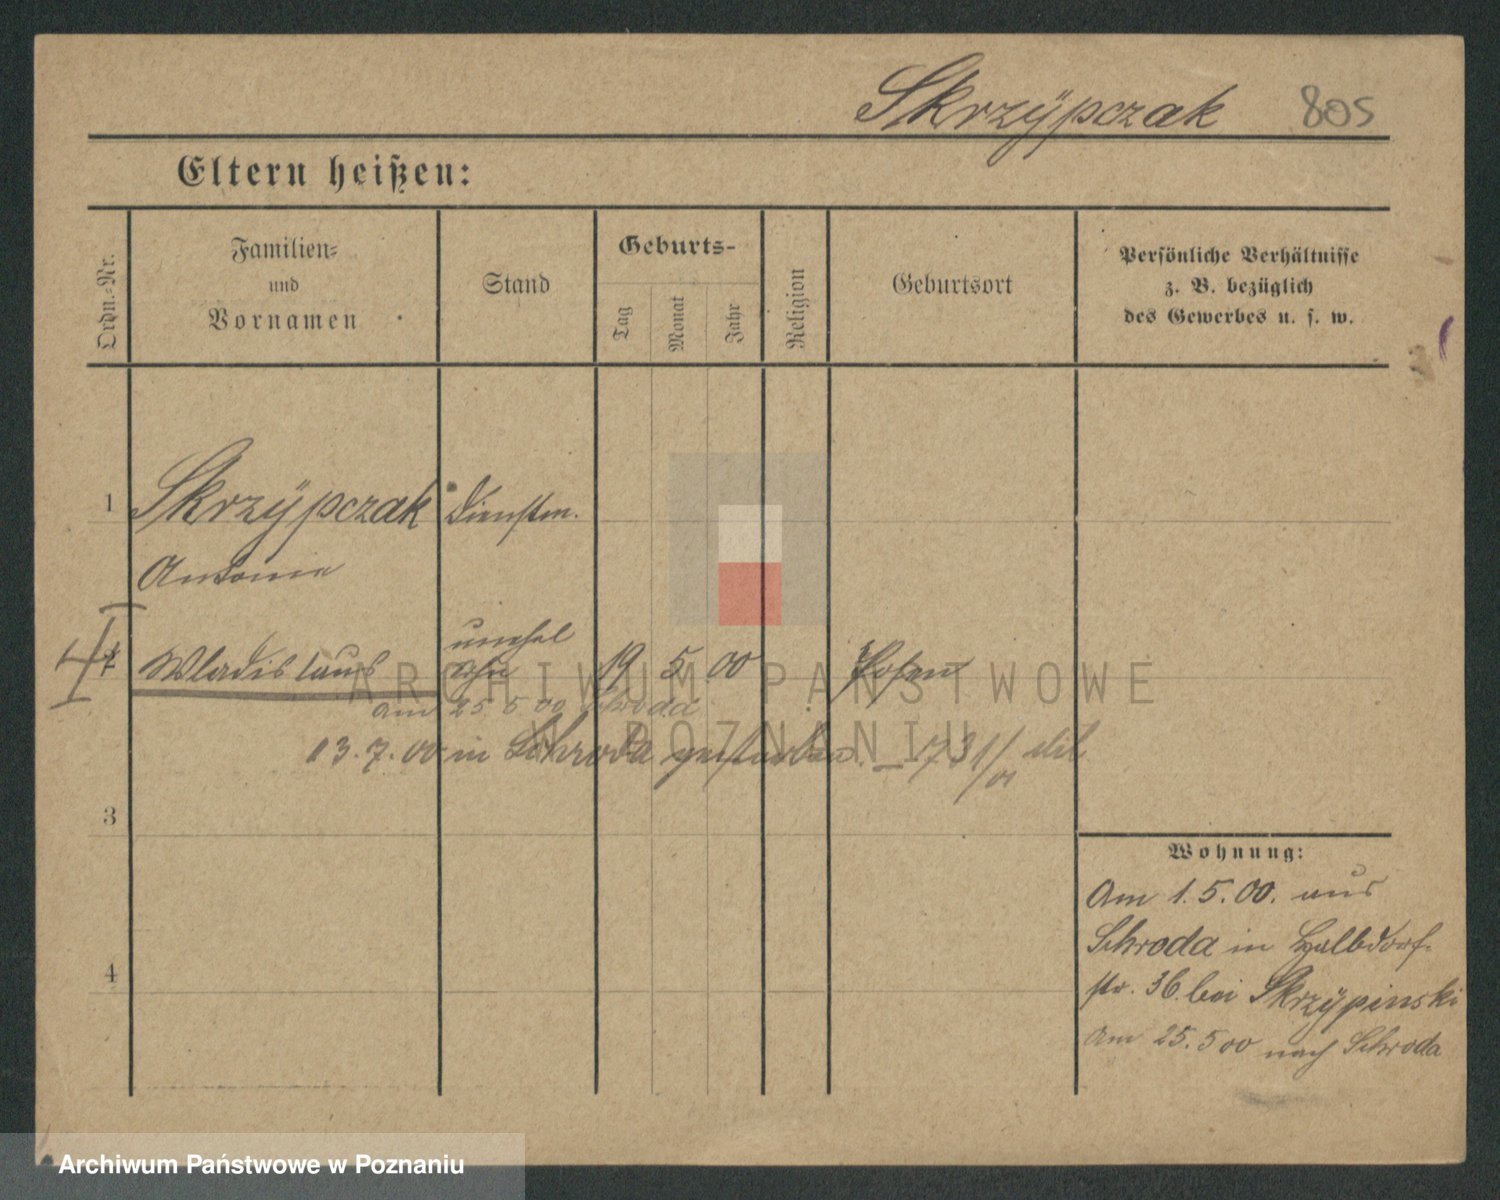 Skrzÿpczak 805
Eltern heißen:
Ordn.-Nr.
Familien-
und
Vornamen
Stand
Geburts-
Tag
Monat
Jahr
Religion
Geburtsort
Persönliche Verhältnisse
z. B. bezüglich
des Gewerbes u. s. w.
1 Skrzÿpczak Dienstm.
Antonie
unehel
Wladislaus Sohn 19 5. 00 Posen
am 25 5 00 Schroda
13. 7. 00 in Schroda gestorben. — 1731/01
3
4
Wohnung:
Am 1. 5. 00. aus
Schroda in Halbdorf-
str. 36. bei Skrzÿpinski
Am 25. 5 00 nach Schroda
ARCHIWUM PAŃSTWOWE
W POZNANIU
Archiwum Państwowe w Poznaniu